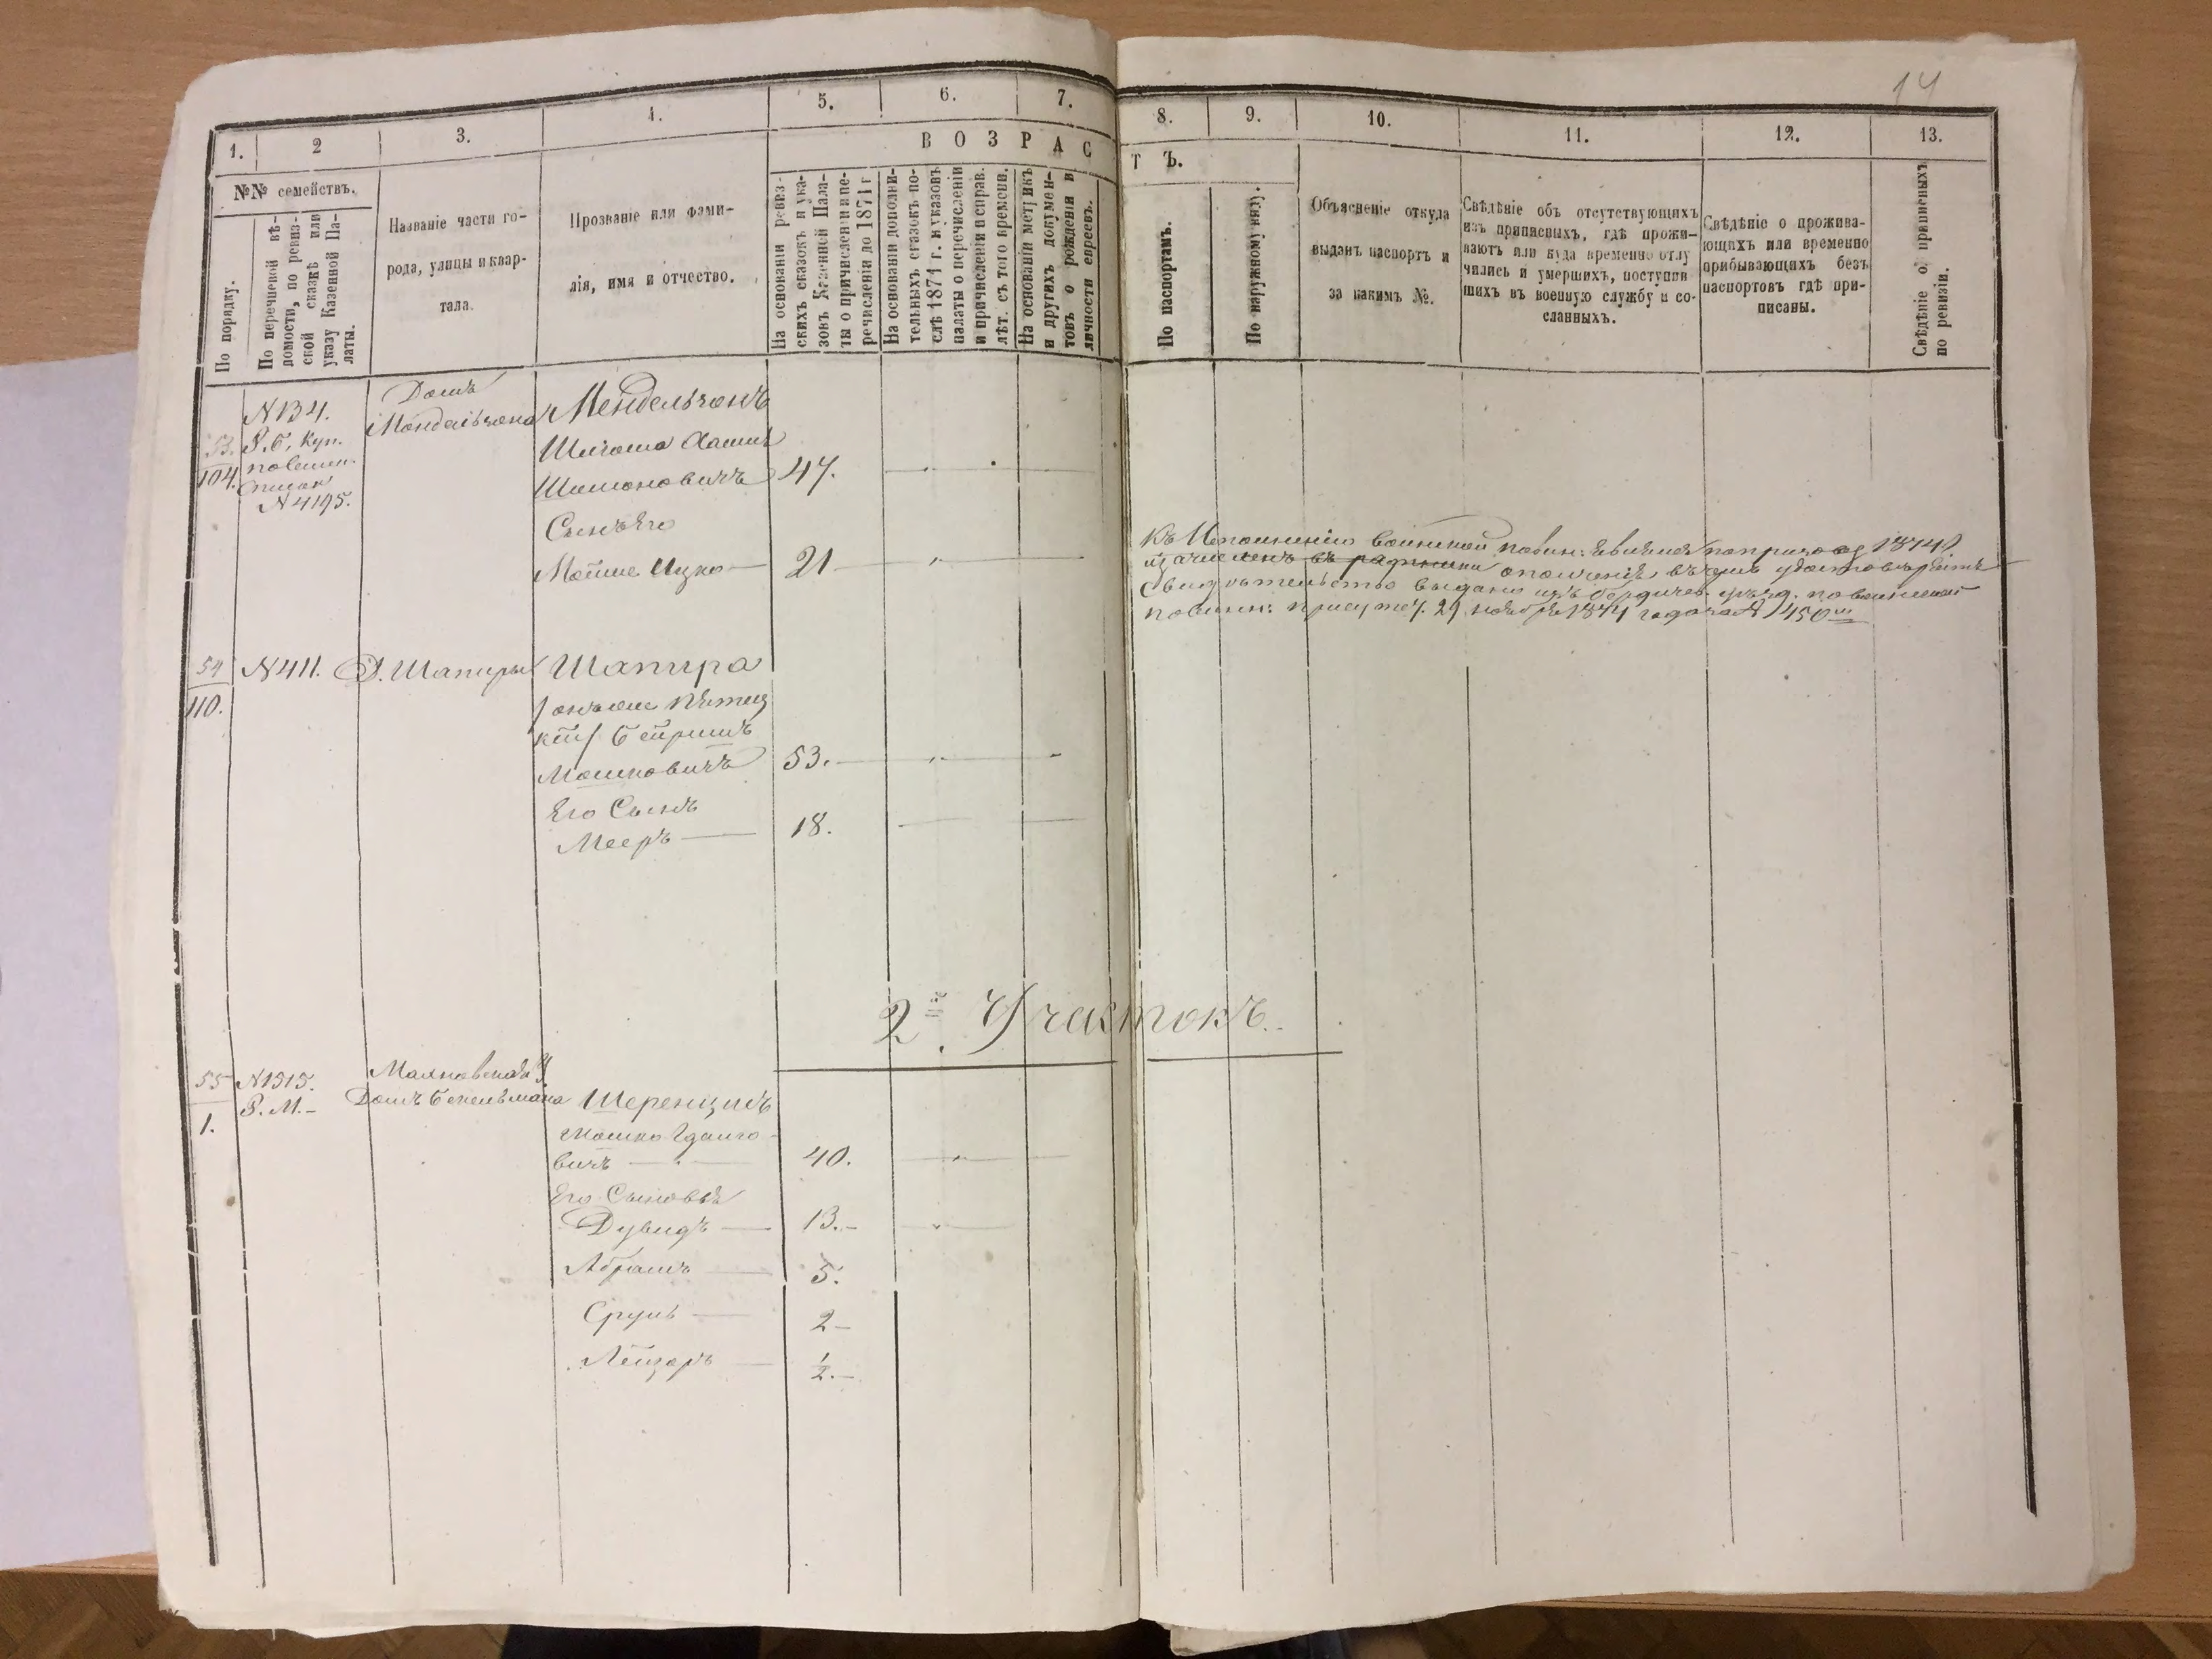 14
1.
2
3.
4.
5.
6.
7.
8.
9.
10.
11.
12.
13.
В О З Р А С
Т Ъ.
№№ семействъ.
По порядку.
По перечневой вѣ-
домости, по ревиз-
ской сказкѣ или
указу Казенной Па-
латы.
Названіе части го-
рода, улицы и квар-
тала.
Прозваніе или фами-
лія, имя и отчество.
На основаніи ревиз-
скихъ сказокъ и ука-
зовъ Казенной Пала-
ты о причисленіи и пе-
речисленіи до 1871 г
На основаніи дополни-
тельныхъ сказокъ по-
слѣ 1871 г. и указовъ
палаты о перечисленіи
и причисленіи и справ.
лѣт. съ того времени.
На основаніи метрикъ
и другихъ докумен-
товъ о рожденіи и
личности евреевъ.
По паспортамъ.
По наружному виду.
Объясненіе откуда
выданъ паспортъ и
за какимъ №.
Свѣдѣніе объ отсутствующихъ
изъ приписныхъ, гдѣ прожи-
ваютъ или куда временно отлу
чились и умершихъ, поступив
шихъ въ военную службу и со-
сланныхъ.
Свѣдѣніе о прожива-
ющихъ или временно
прибывающихъ безъ
паспортовъ гдѣ при-
писаны.
Свѣдѣніе о приписныхъ
по ревизіи.
53.
104.
N 134.
Р. Б. Куп.
N 4195.
Домъ
Мендельзона
Мендельзонъ
Шимоновичъ 47.
Сынъ Его
Мошие Ицко — 21
Къ Исполненію воинской повин: явился по призыву 1874
зачисленъ въ ратники ополченія, въ чемъ
свидѣтельство выдано изъ Бердичев. уѣзд. по воинской
повин: присутст. 29 ноября 1874 года за N 450
54
110.
N 411.
Д. Шапиры
Шапира
Бейришъ
Мошковичъ 53.
Его Сынъ
Мееръ — 18.
2й Участокъ.
55
1.
N 1515.
Р. М. –
Махновская У.
Домъ Бекельмана
Шеренцисъ
Мошко
вичъ — 40.
Его Сыновья
Дувидъ — 13. –
Абрамъ — 5.
Сруль — 2 –
Лейзоръ — 1/2. –